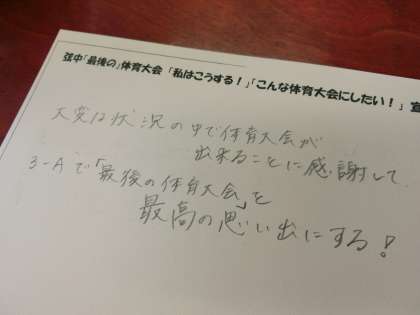 弦中「最後の」体育大会「私はこうする!」「こんな体育大会にしたい!」宣
大変な状況の中で体育大会が
出来ることに感謝して
3-Aで「最後の体育大会」を
最高の思い出にする!